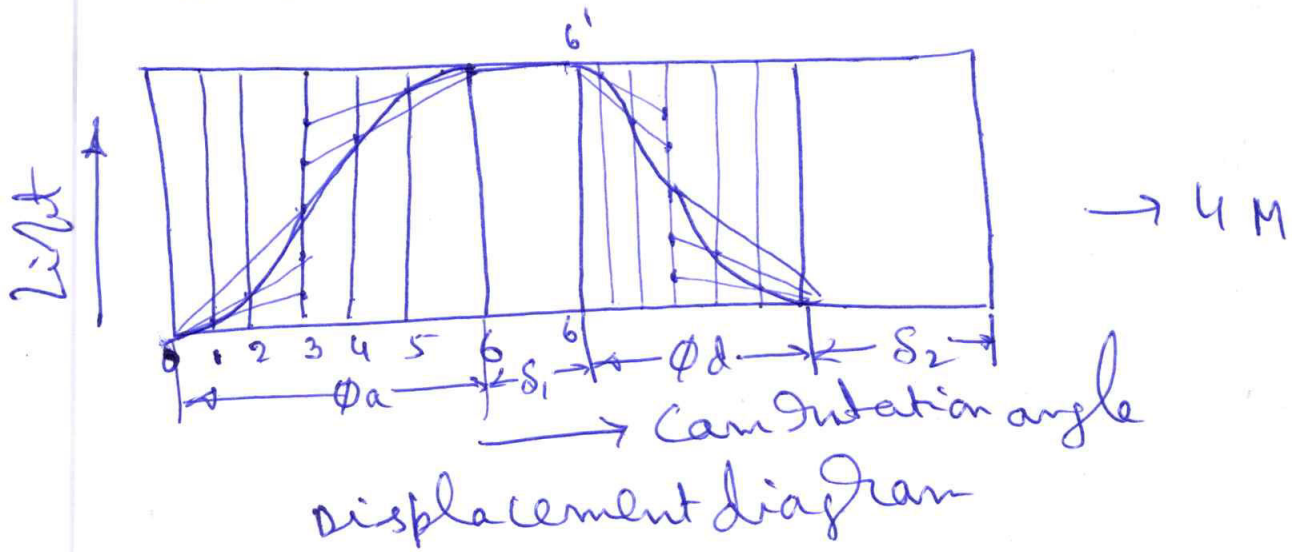 6'
Lift
→ 4 M
0 1 2 3 4 5 6 6
φa S₁ φd S₂
→ Cam rotation angle
Displacement diagram